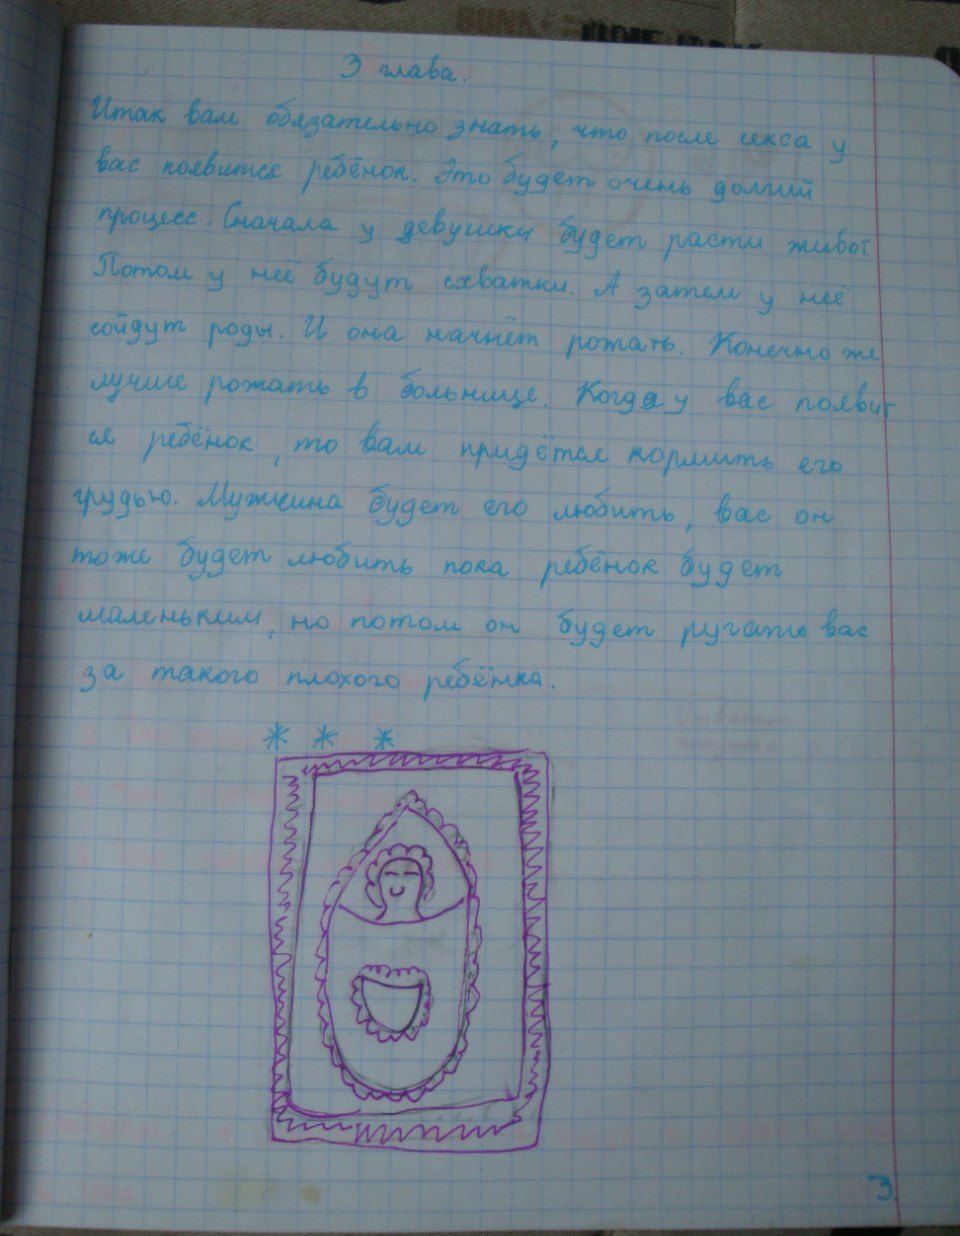 3 глава.
Итак вам обязательно знать, что после секса у
вас появится ребёнок. Это будет очень долгий
процесс. Сначала у девушки будет расти живот.
Потом у неё будут схватки. А затем у неё
сойдут роды. И она начнёт рожать. Конечно же
лучше рожать в больнице. Когда у вас появит
ся ребёнок, то вам придётся кормить его
грудью. Мужчина будет его любить, вас он
тоже будет любить пока ребёнок будет
маленьким, но потом он будет ругать вас
за такого плохого ребёнка.
* * *
3